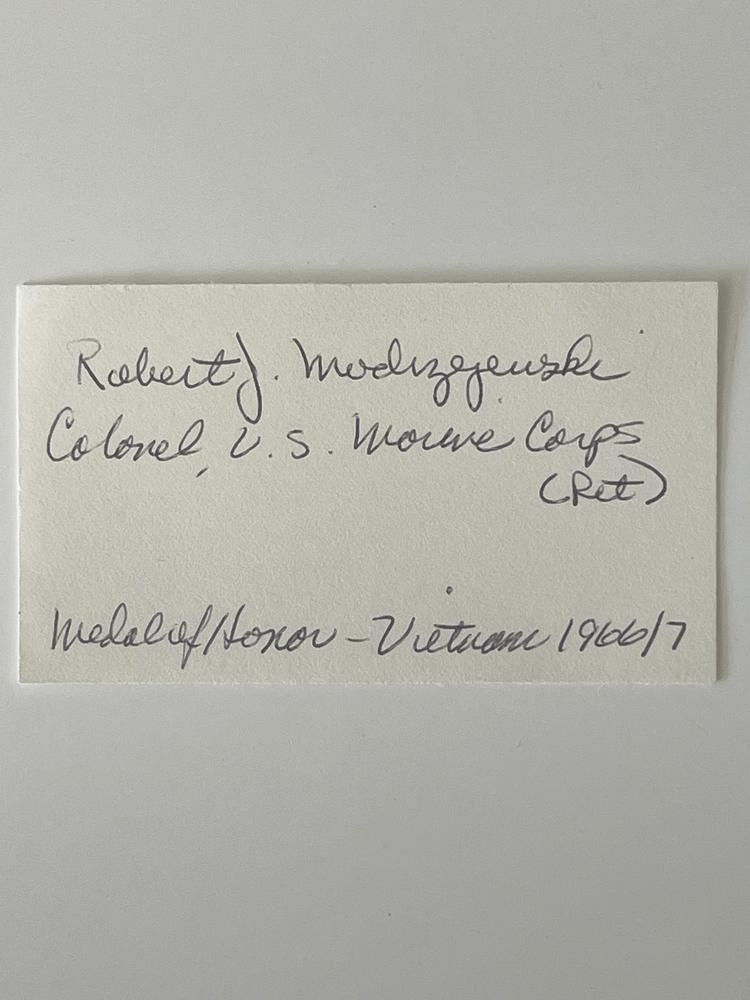 Robert J. Modrzejewski
Colonel, U.S. Marine Corps
(Ret)
Medal of Honor - Vietnam 1966/7